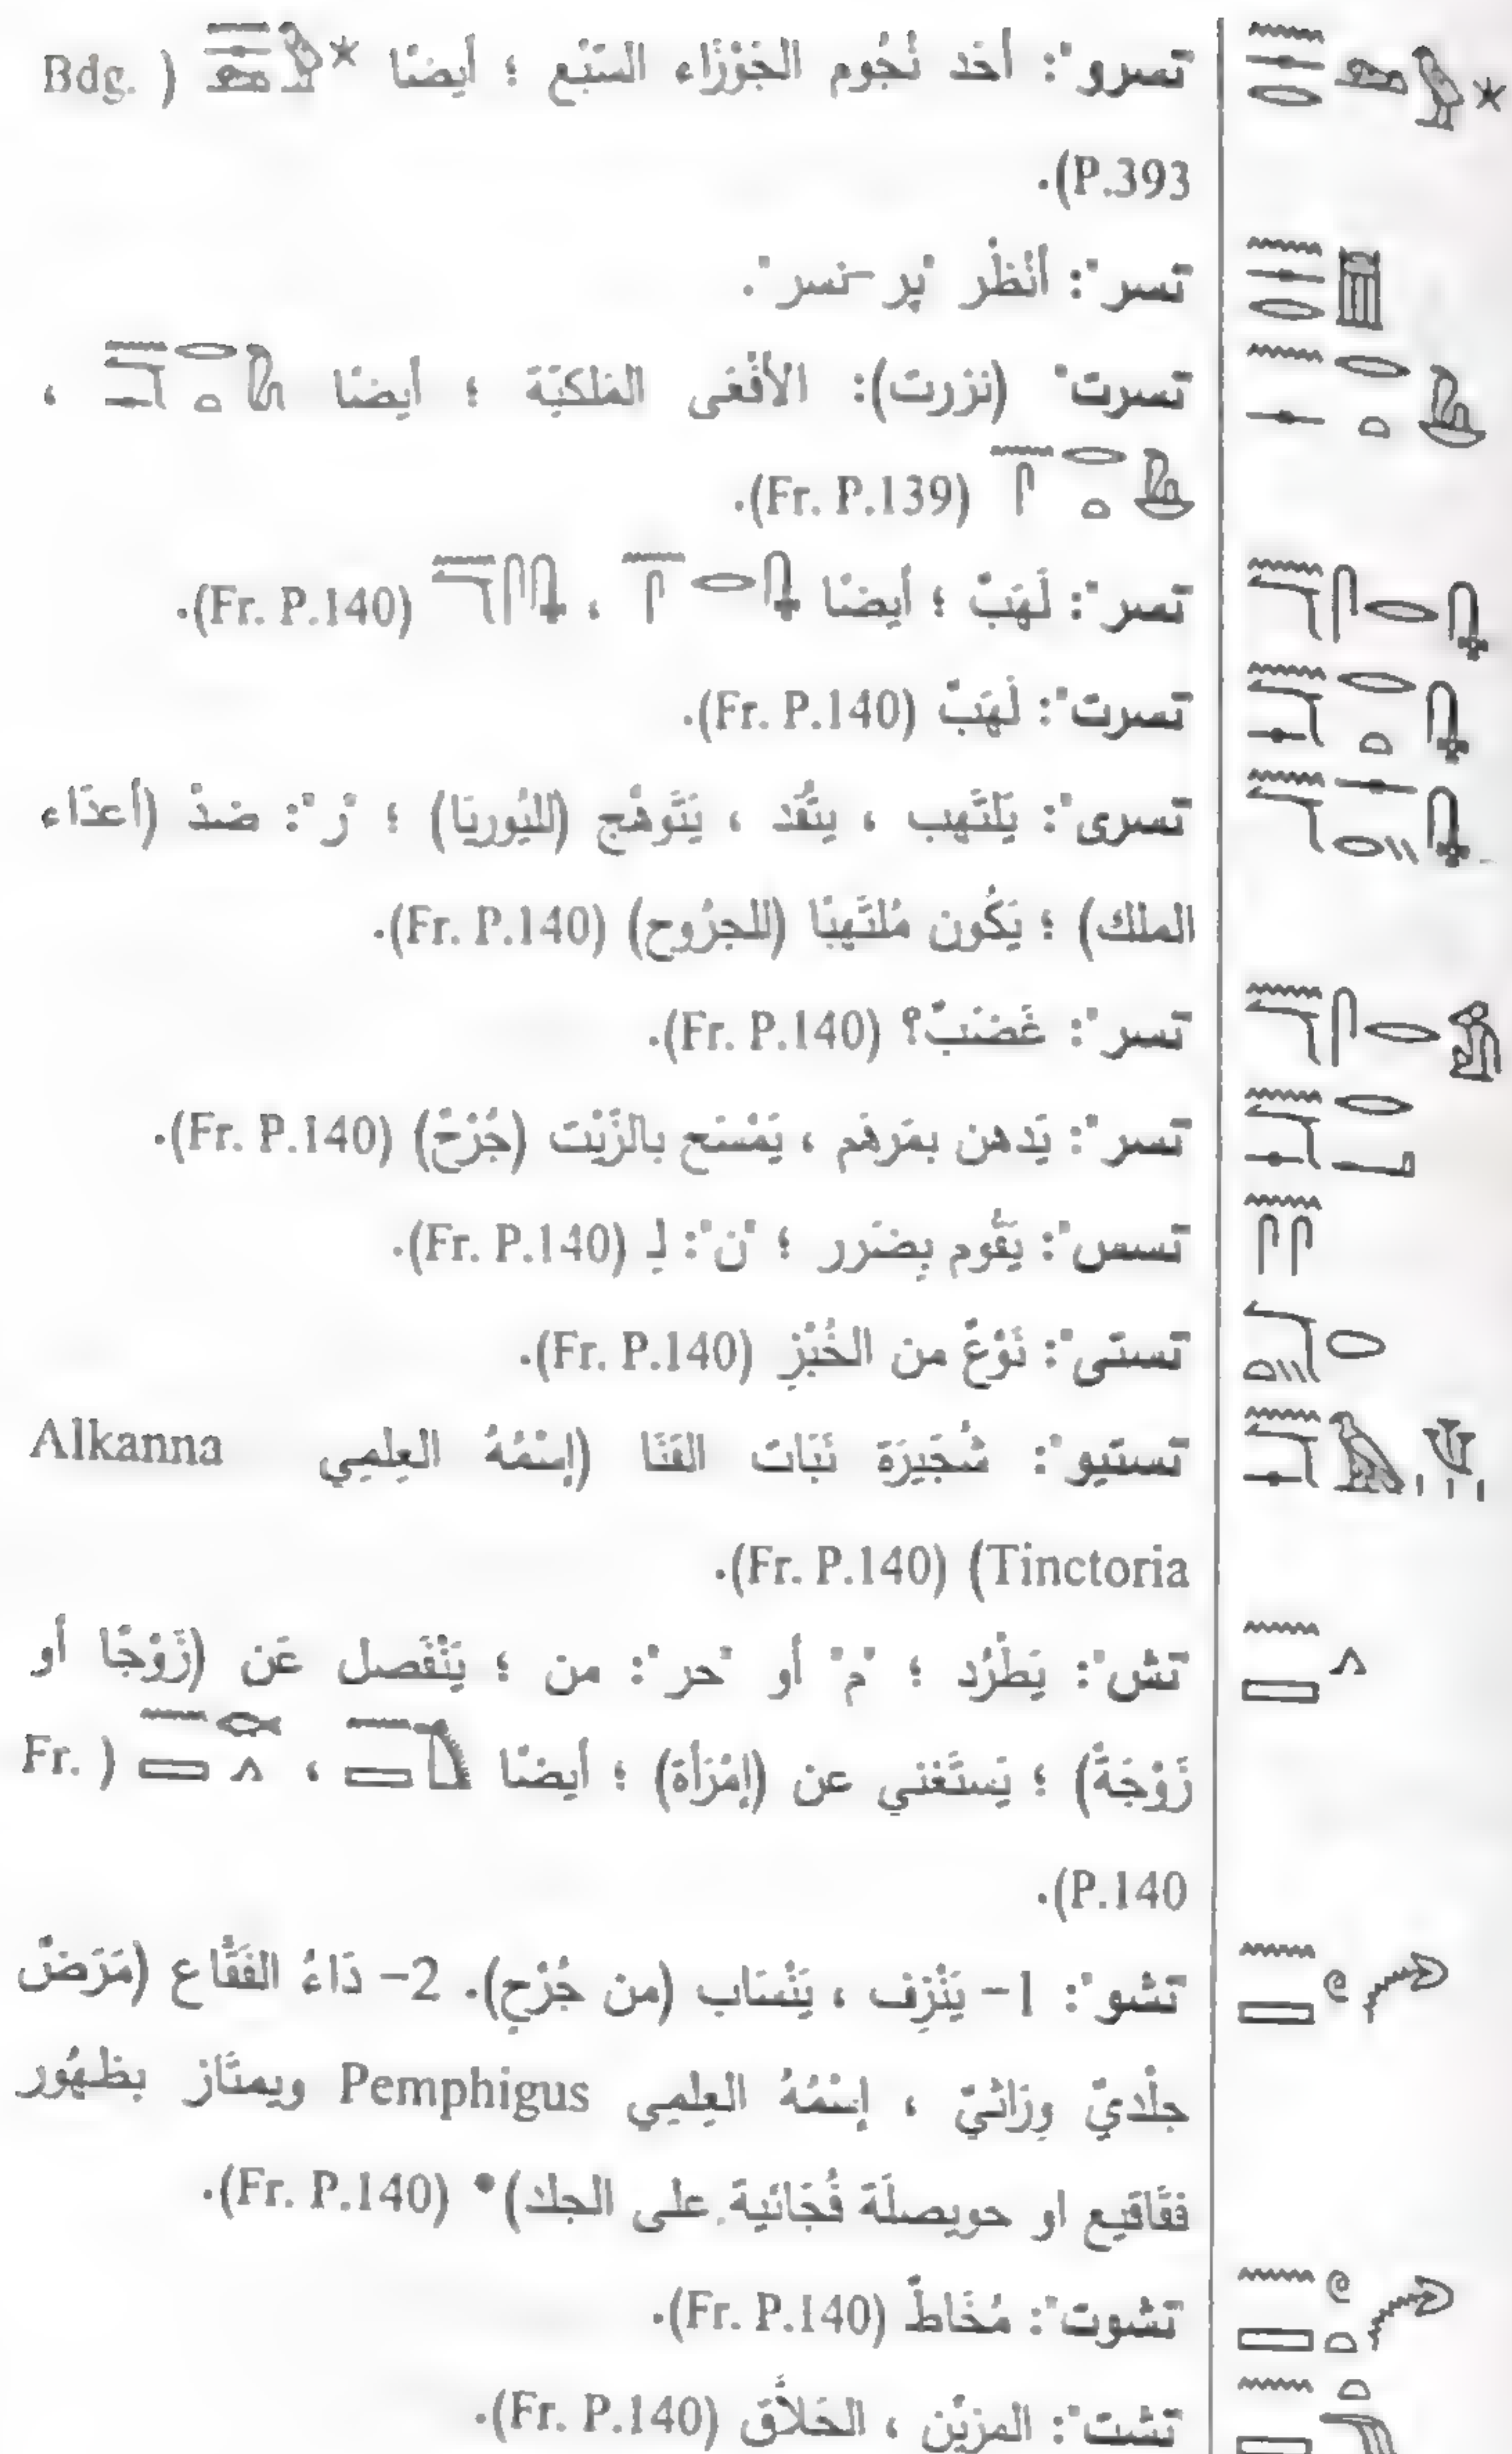 "نسرو": أَحَد نُجُوم الجَوْزَاء السَّبْع ؛ أيضًا ( Bdg.
P.393).
"نسر": أَنْظُر "پر-نسر".
"نسرت" (نزرت): الأَفْعَى المَلَكِيَّة ؛ أيضًا ،
(Fr. P.139).
"نسر": لَهَبٌ ؛ أيضًا ، (Fr. P.140).
"نسرت": لَهَبٌ (Fr. P.140).
"نسرى": يَلتَهِب ، يتَّقد ، يَتَوهَّج (لليُوريَا) ؛ "ر": ضدّ (أعدَاء
الملك) ؛ يَكُون مُلتَهِبًا (للجرُوح) (Fr. P.140).
"نسر": غَضَبٌ؟ (Fr. P.140).
"نسر": يَدهن بمَرهَم ، يَمْسَح بالزَّيْت (جُرْحٌ) (Fr. P.140).
"نسس": يَقُوم بِضَرر ؛ "ن": لِـ (Fr. P.140).
"نستى": نَوْعٌ من الخُبْزِ (Fr. P.140).
"نستيو": شُجَيرَة نَبَات القَنَا (إسْمُهُ العِلمِي Alkanna
Tinctoria) (Fr. P.140).
"نش": يَطْرُد ؛ "م" أو "حر": من ؛ يَنْفَصل عَن (زَوْجًا أو
زَوْجَةً) ؛ يَستَغني عن (إمْرَأة) ؛ أيضًا ، ( Fr.
P.140).
"نشو": 1- يَنْزِف ، يَنْسَاب (من جُرْح). 2- دَاءُ الفَقَّاع (مَرَضٌ
جلْديّ وِرَاثيّ ، إسْمُهُ العِلمِي Pemphigus ويمتَاز بظهُور
فقَاقيع او حويصلَة فُجَائية على الجلد)* (Fr. P.140).
"نشوت": مُخَاطٌ (Fr. P.140).
"نشت": المزيّن ، الحَلاَّق (Fr. P.140).